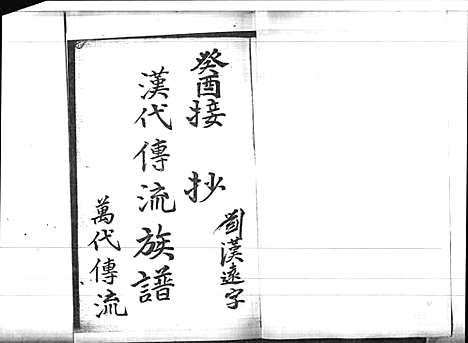 漢遠字
癸酉接抄
漢代傳流族譜
萬代傳流